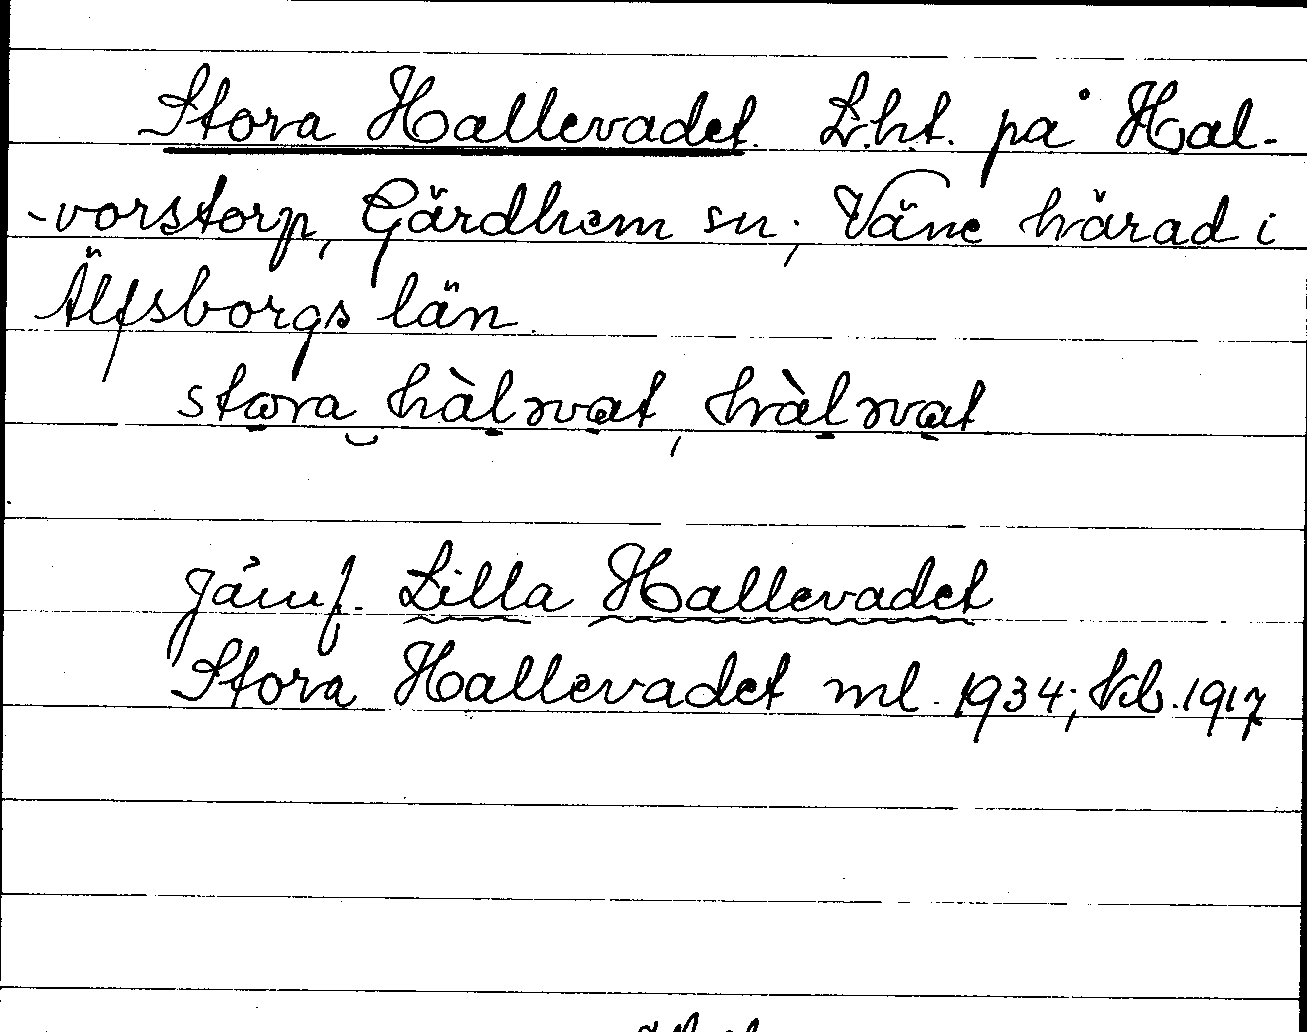 Stora Hallevadet. L.ht. på Hal-
-vorstorp, Gärdhem sn; Väne härad i
Älfsborgs län.
stora hàlvat, hàlvat
Jämf. Lilla Hallevadet
Stora Hallevadet ml. 1934; kb. 1917